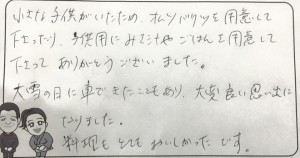 小さな子供がいたため、オムツバケツを用意して
下さったり、子供用にみそ汁やごはんを用意して
下さって ありがとうございました。
大雪の日に車できたこともあり、大変良い思い出に
なりました。
料理もとてもおいしかったです。